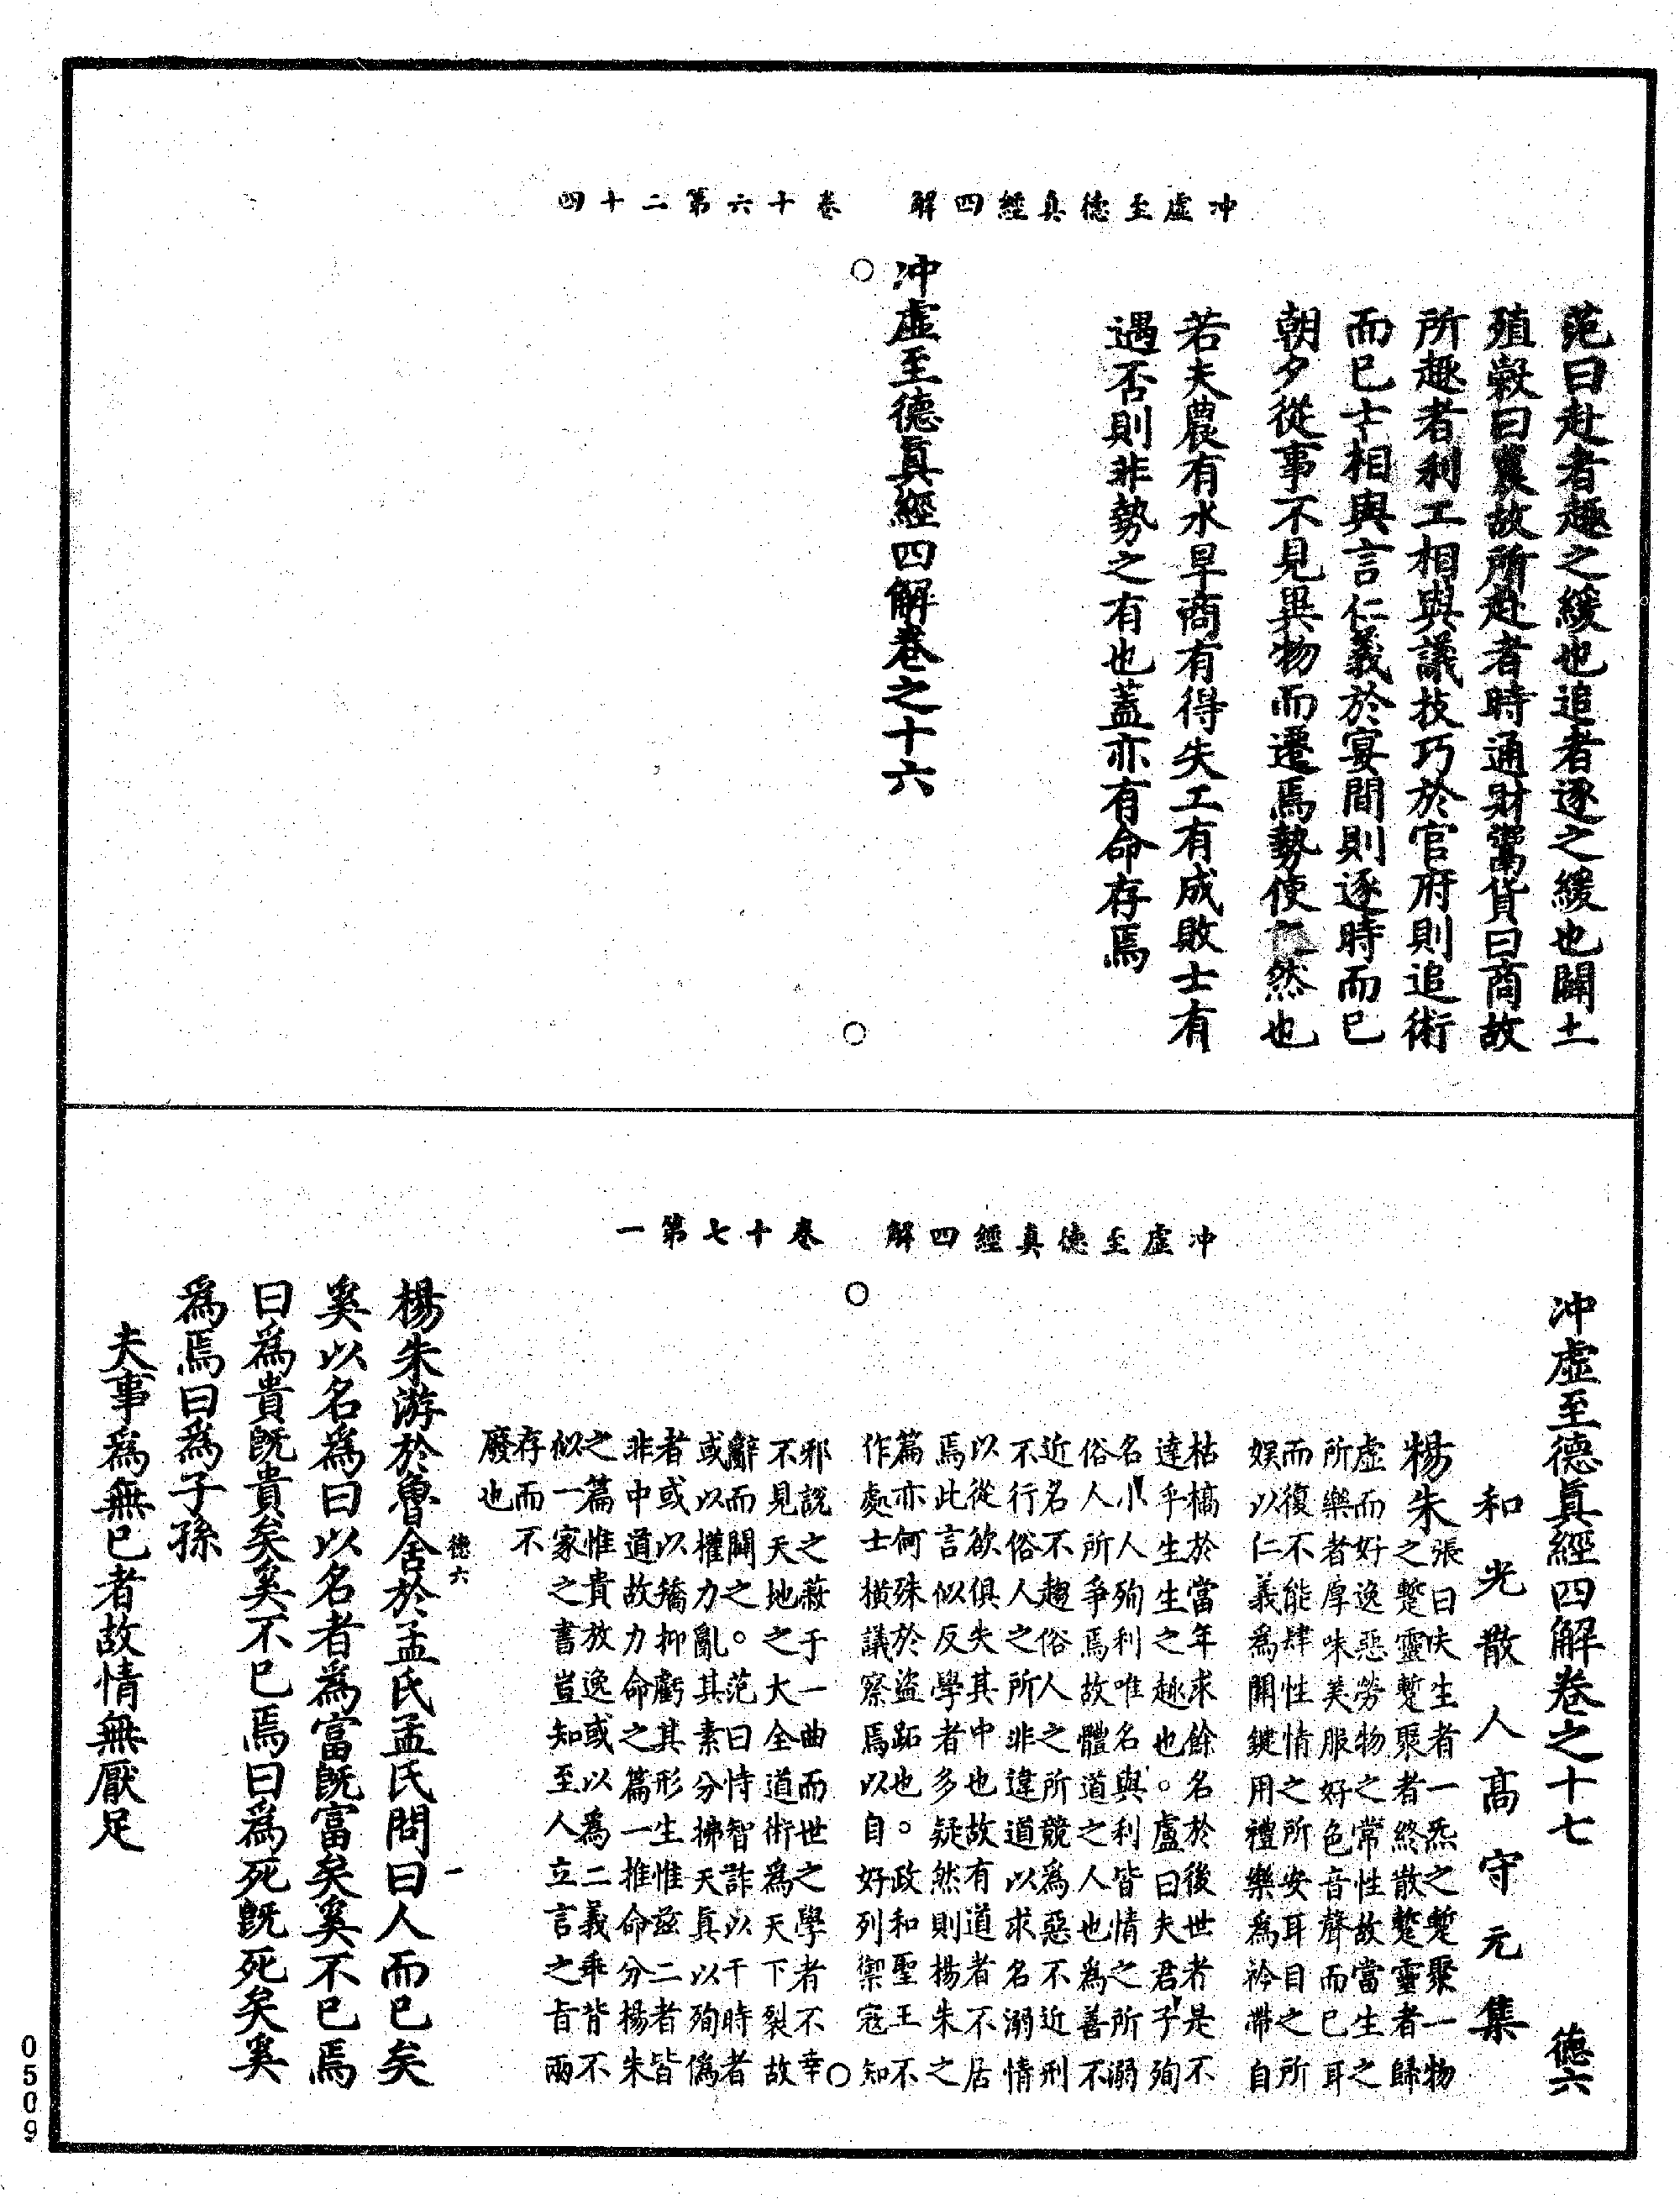 冲虛至德真經四解　卷十六第二十四
范曰赴者趣之緩也追者逐之緩也闢土
殖穀曰農故所赴者時通財鬻貨曰商故
所趣者利工相與議技巧於官府則追術
而已士相與言仁義於宴間則逐時而已
朝夕從事不見異物而遷焉勢使然也
若夫農有水旱商有得失工有成敗士有
遇否則非勢之有也蓋亦有命存焉
冲虛至德眞經四解卷之十六
冲虛至德真經四解　卷十七第一
冲虛至德眞經四解卷之十七　德六
和光散人高守元集
楊朱
張曰夫生者一炁之蹔聚一物
之蹔靈蹔聚者終散蹔靈者歸
虛而好逸惡勞物之常性故當生之
所樂者厚味美服好色音聲而已耳
而復不能肆性情之所安耳目之所
娱以仁義爲關鍵用禮樂爲衿帶自
枯槁於當年求餘名於後世者是不
達乎生生之趣也。盧曰夫君子殉
名小人殉利唯名與利皆情之所溺
俗人所爭焉故體道之人也爲善不
近名不趨俗人之所競爲惡不近刑
不行俗人之所非違道以求名溺情
以從欲俱失其中也故有道者不居
焉此言似反學者多疑然則楊朱之
篇亦何殊於盜跖也。政和聖王不
作處士橫議察焉以自好列禦寇知
邪說之蔽于一曲而世之學者不幸
不見天地之大全道術爲天下裂故
辭而闢之。范曰恃智詐以干時者
或以權力亂其素分拂天真以殉僞
者或以矯抑虧其形生惟兹二者皆
非中道故力命之篇一推命分楊朱
之篇惟貴放逸或以爲二義乖背不
似一家之書豈知至人立言之旨兩
存而不
廢也
德六　一
楊朱游於魯舍於孟氏孟氏問曰人而已矣
奚以名爲曰以名者爲富既富矣奚不已焉
曰爲貴既貴矣奚不已焉曰爲死既死矣奚
爲焉曰爲子孫
夫事爲無已者故情無厭足
0509